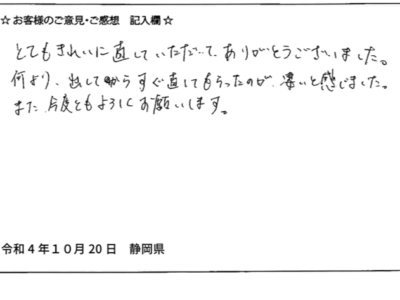 ☆お客様のご意見・ご感想 記入欄☆
とてもきれいに直していただいて、ありがとうございました。
何より、出してからすぐ直してもらったのが、凄いと感じました。
また今度ともよろしくお願いします。
令和4年10月20日 静岡県